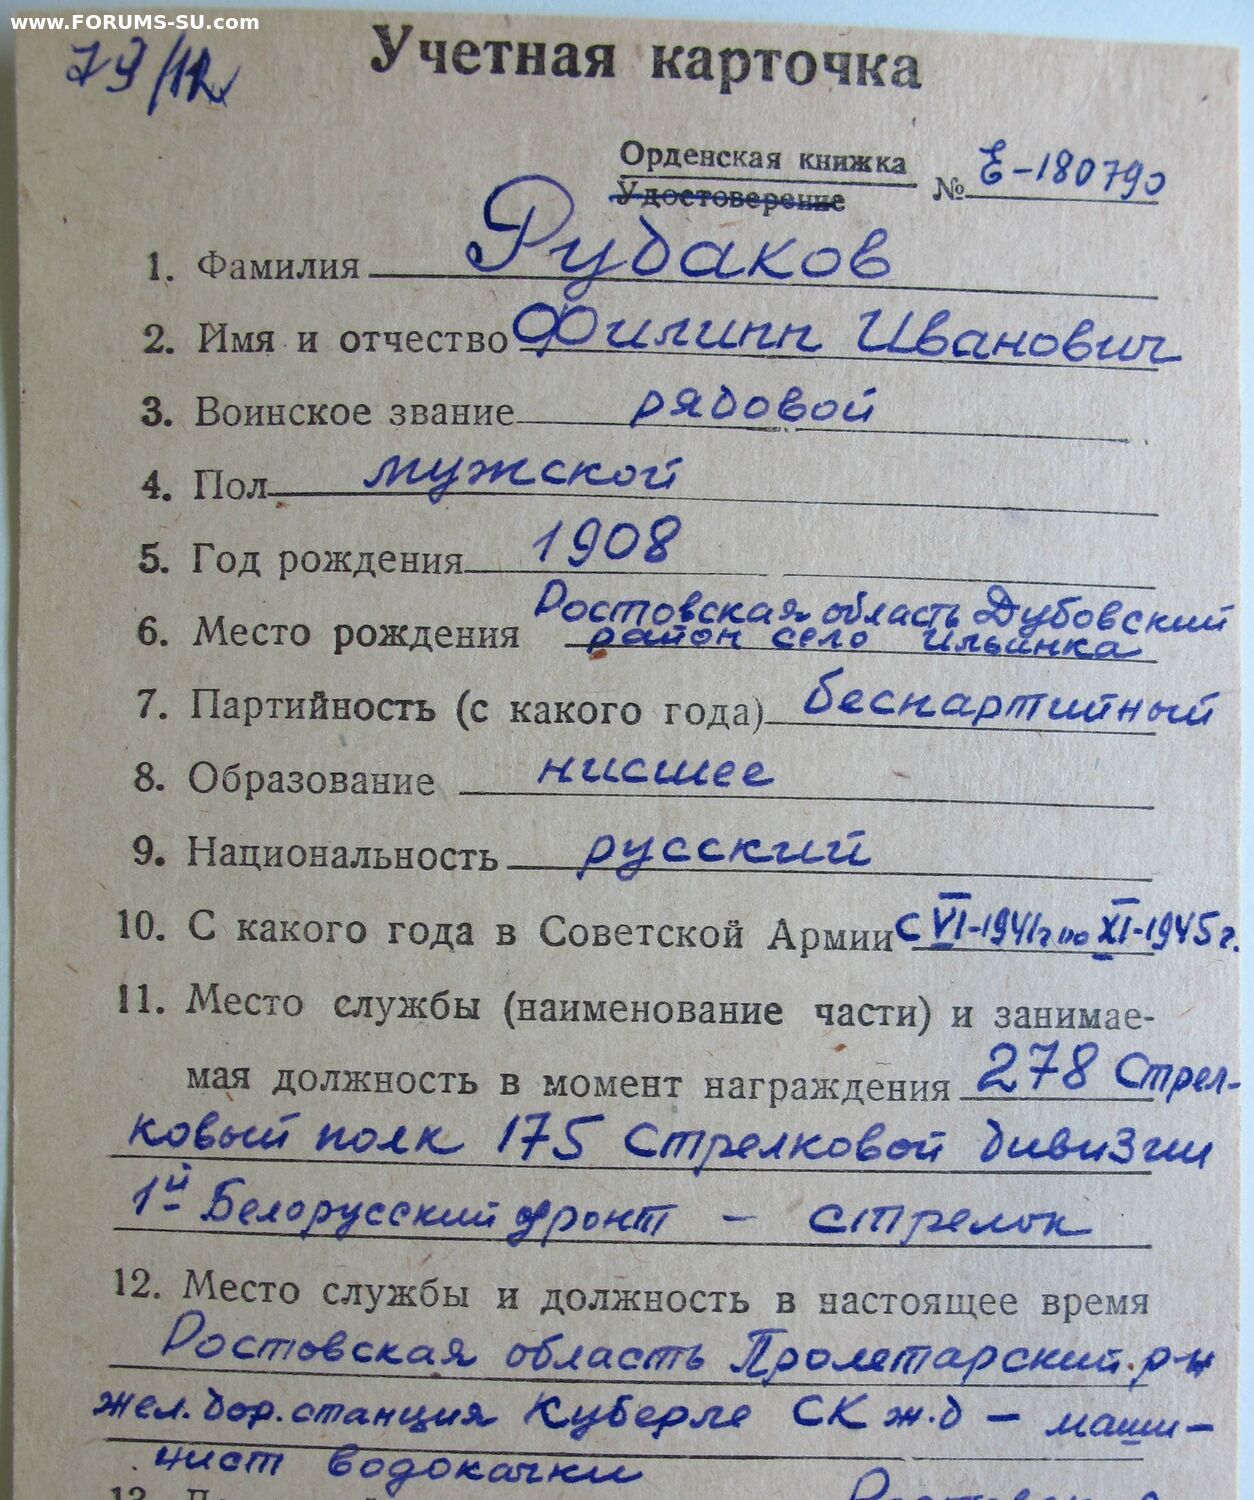 www.FORUMS-SU.com
79/12
Учетная карточка
Орденская книжка
Удостоверение
№ Е-180790
1. Фамилия Рубаков
2. Имя и отчество Филипп Иванович
3. Воинское звание рядовой
4. Пол мужской
5. Год рождения 1908
6. Место рождения Ростовская область Дубовский
район село Ильинка
7. Партийность (с какого года) беспартийный
8. Образование нисшее
9. Национальность русский
10. С какого года в Советской Армии с VI-1941г по XI-1945г.
11. Место службы (наименование части) и занимае-
мая должность в момент награждения 278 Стрел-
ковый полк 175 Стрелковой дивизии
1й Белорусский фронт - стрелок
12. Место службы и должность в настоящее время
Ростовская область Пролетарский р-н
жел.дор.станция Куберле СК ж.д - маши-
нист водокачки
13.